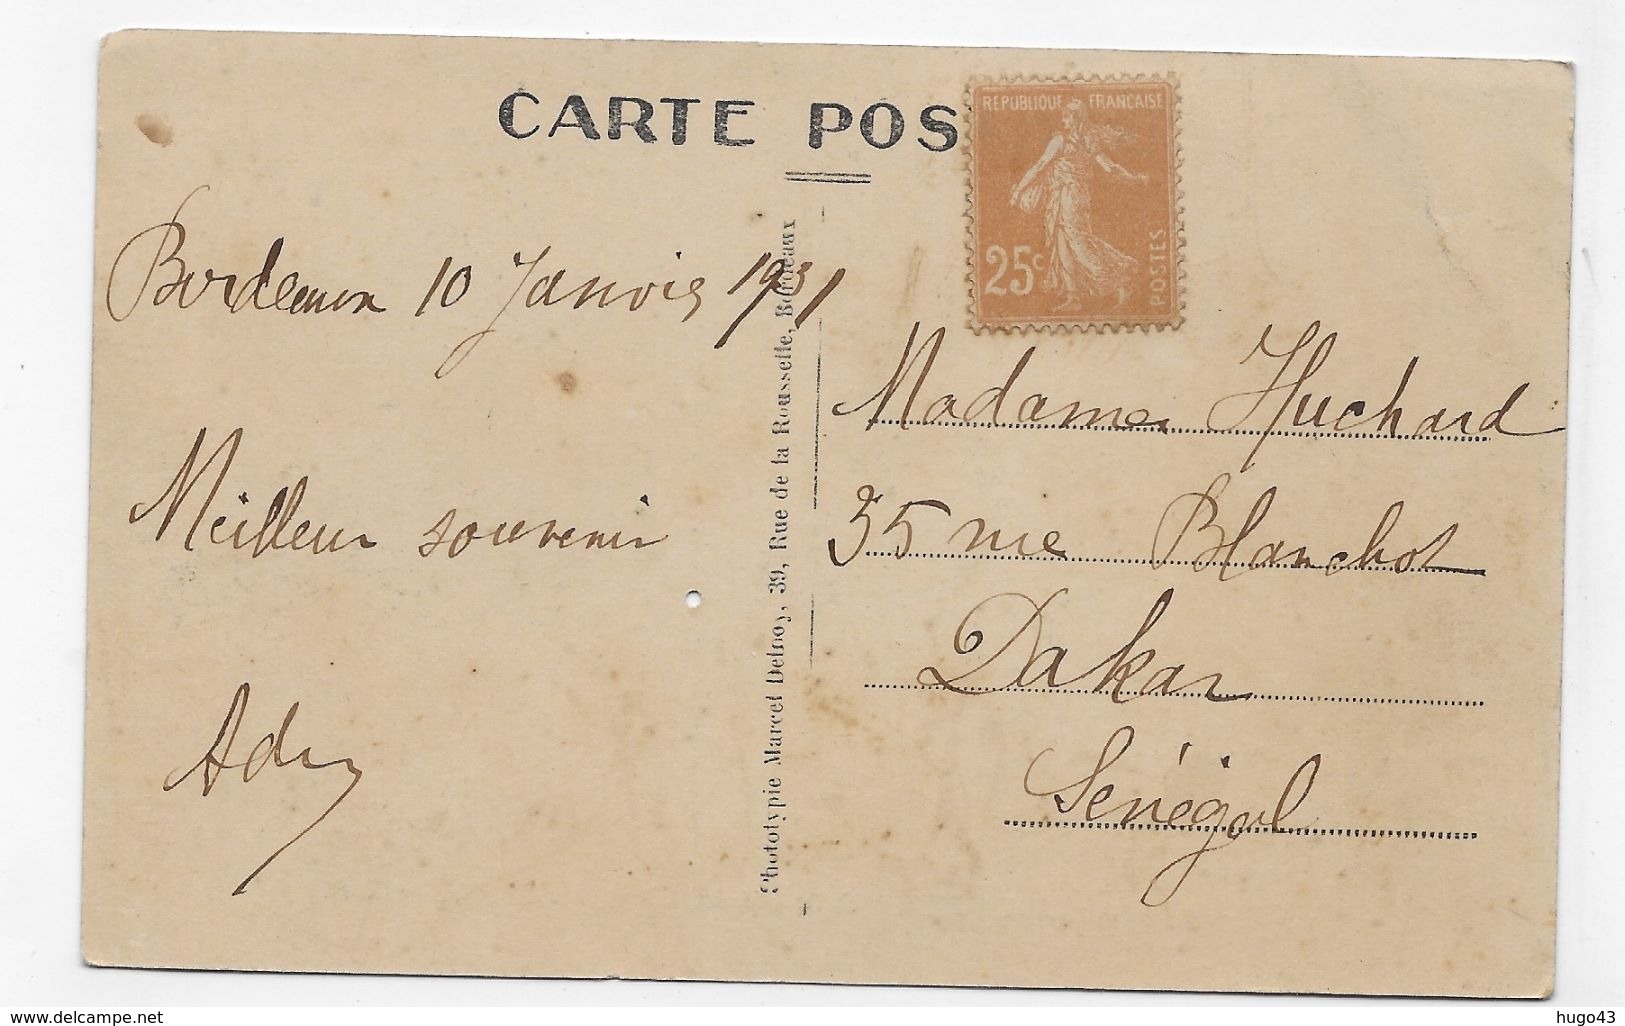 CARTE POS
REPUBLIQUE FRANÇAISE
25c
POSTES
Bordeaux 10 Janvier 1931
Meilleur souvenir
Phototypie Marcel Delboy, 39, Rue de la Rousselle, Bordeaux
Madame Huchard
35 rue Blanchot
Dakar
Sénégal
www.delcampe.net
hugo43